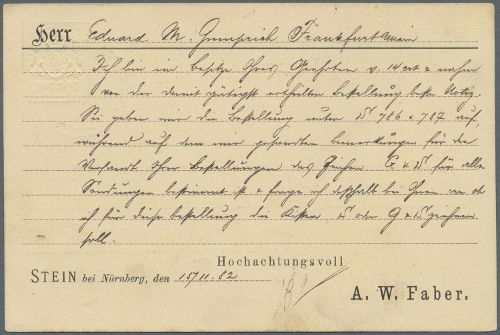 Herr Eduard M. Gumprich Frankfurt a/main
Ich bin im besitze Ihres Geehrten v. 14 crt & nehm
von der damit gütigst ertheilten Bestellung besten Notiz.
Sie geben mir die Bestellung unter 786 & 787 auf,
während auf dem mir gesandten bemerkungen für den
Versandt Ihrer Bestellungen das Zeichen G & für alle
Sendungen bestimmt ist & frage ich desshalb bei Ihnen an ob
ich für diese bestellung die Kisten oder G & zeichnen
soll.
Hochachtungsvoll
STEIN bei Nürnberg, den 15/11.82
A. W. Faber.